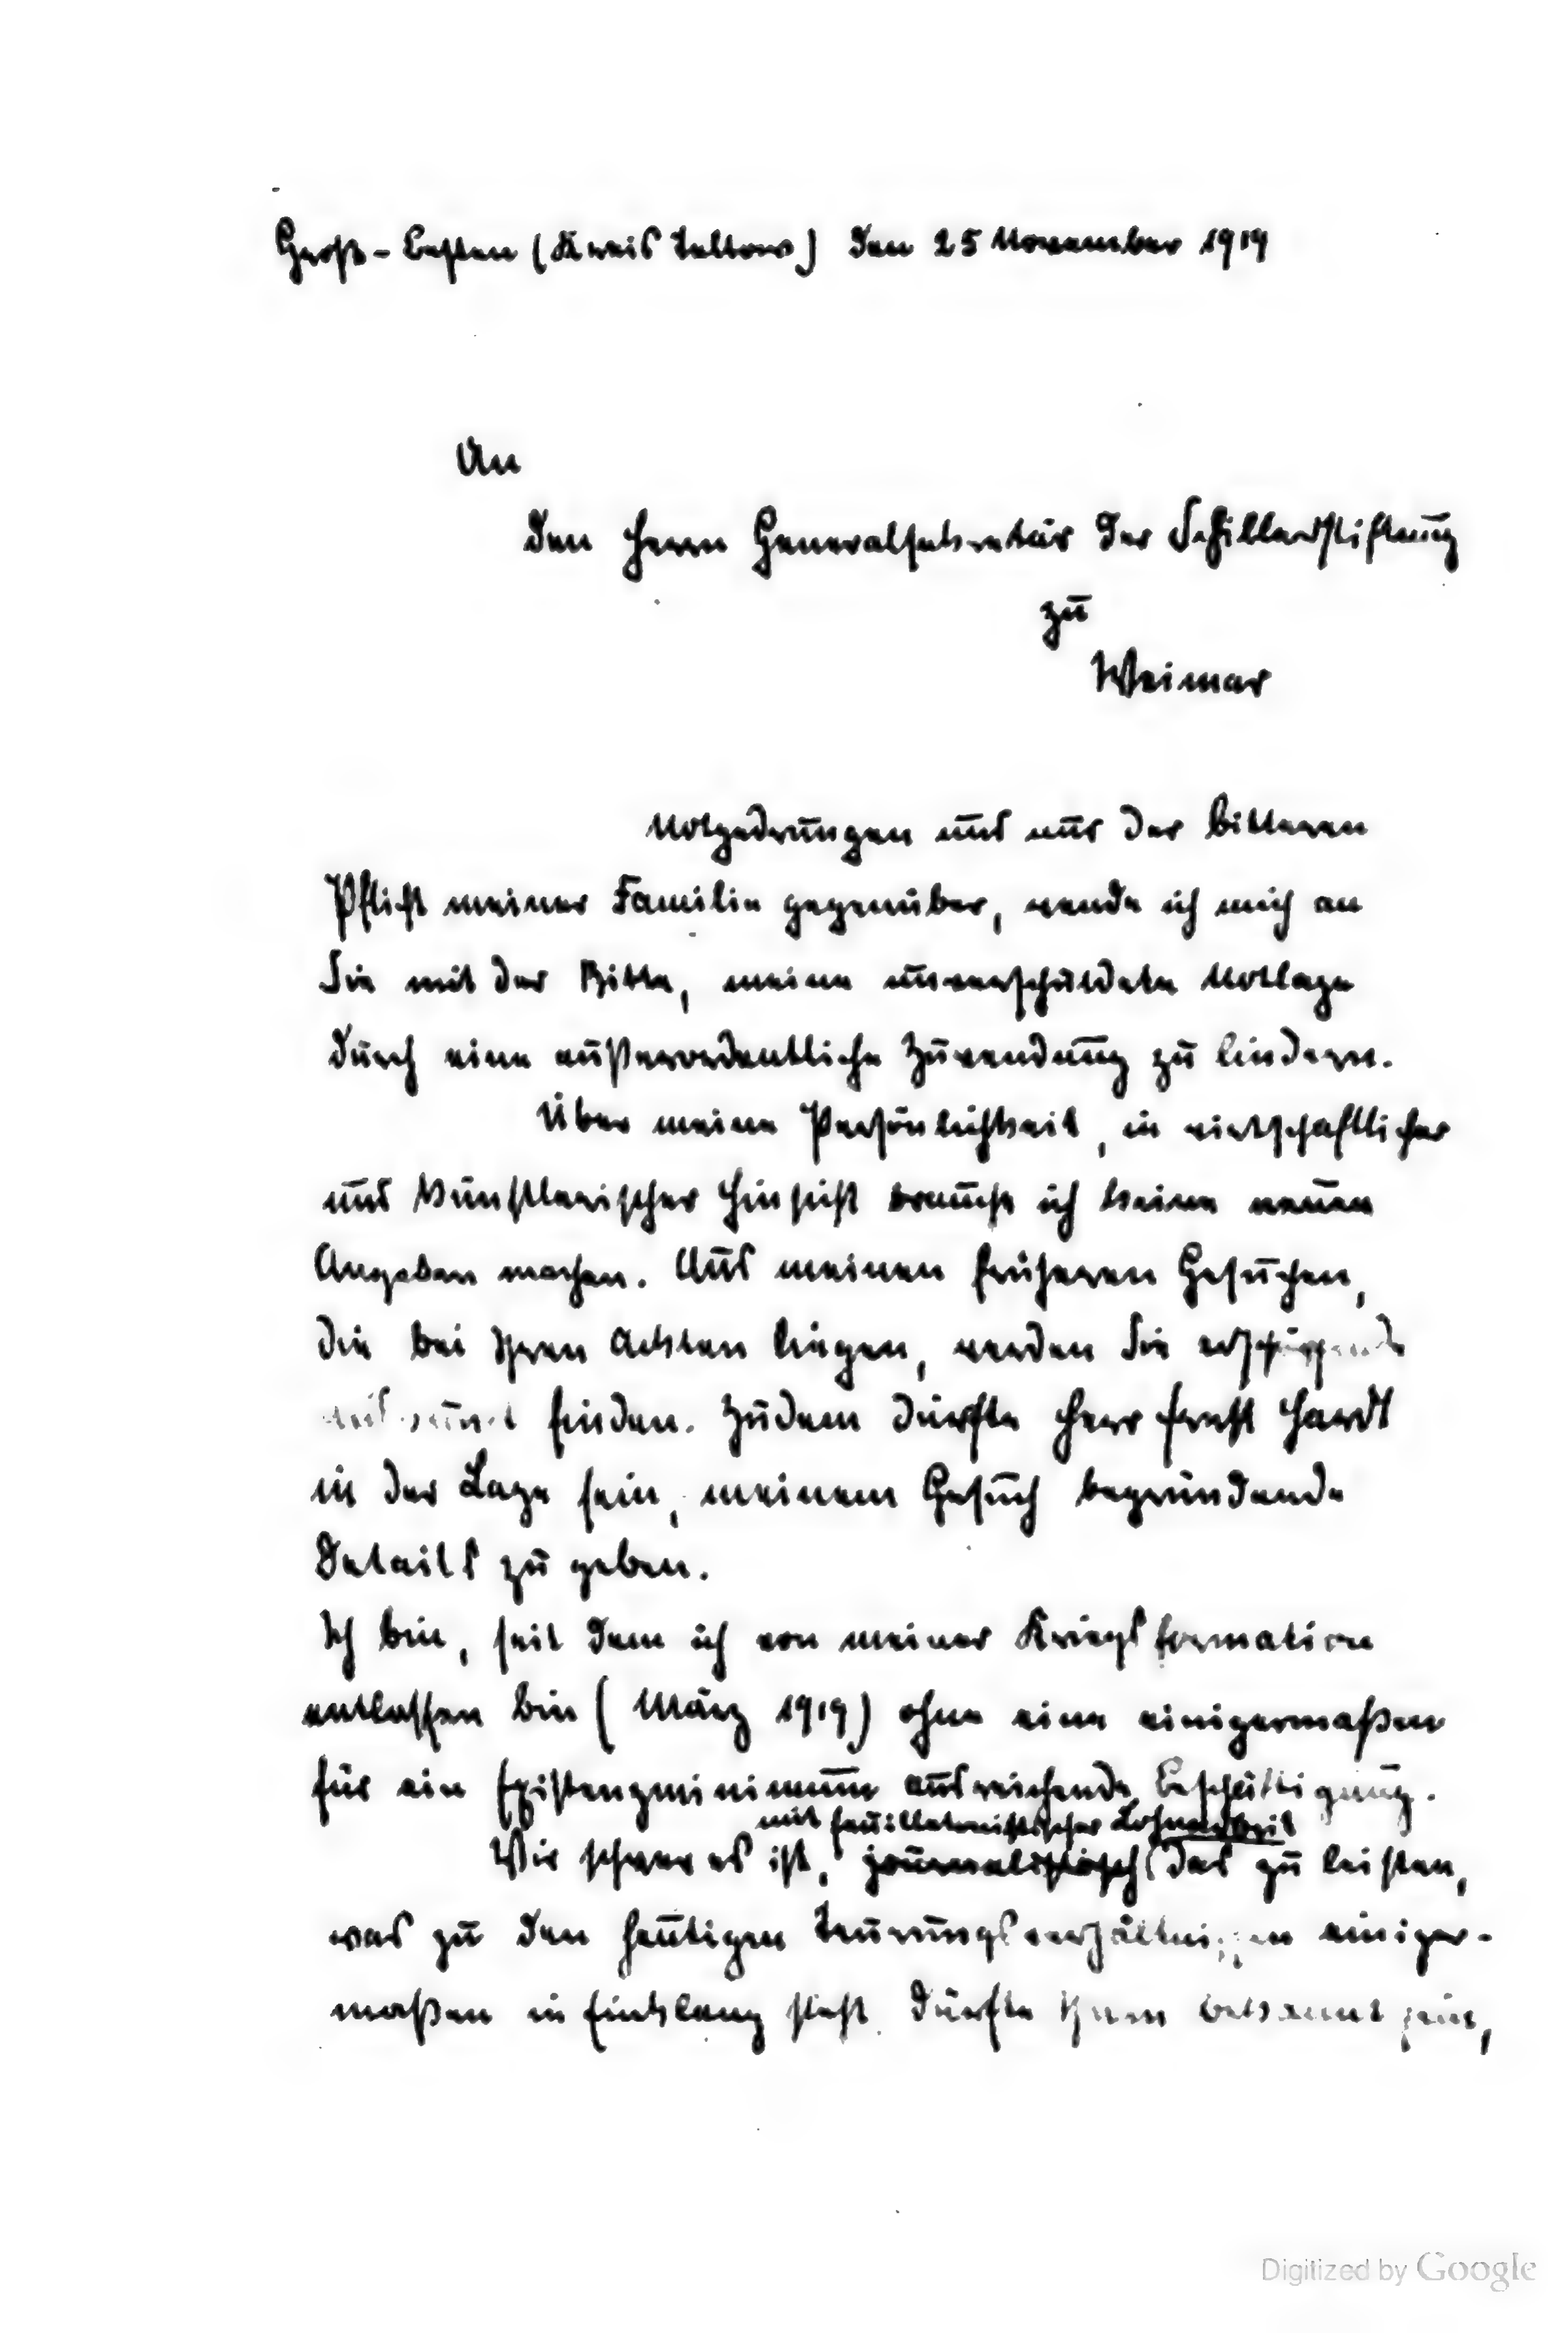 Groß-Besten (Kreis Teltow) den 25 November 1919
An
den Herrn Generalsekretär der Schillerstiftung
zu
Weimar
Notgedrungen und aus der bitteren
Pflicht meiner Familie gegenüber, wende ich mich an
Sie mit der Bitte, meine unverschuldete Notlage
durch eine außerordentliche Zuwendung zu lindern.
Über meine Persönlichkeit, in wirtschaftlicher
und künstlerischer Hinsicht brauche ich keine neuen
Angaben machen. Aus meinen früheren Gesuchen,
die bei Ihren Ackten liegen, werden Sie
finden. Zudem dürfte Herr Ernst Hardt
in der Lage sein, meinem Gesuch begründende
Details zu geben.
Ich bin, seit dem ich von meiner Kriegsformation
entlassen bin (März 1919) ohne eine einigermaßen
für ein Existenzminimum ausreichende Beschäftigung.
mit feuilletonistischer Lohnarbeit
Wie schwer es ist, journalistisch das zu leisten,
was zu den heutigen Teurungsverhältnissen einiger-
maßen in Einklang steht. dürfte Ihnen bekannt sein,
Digitized by Google